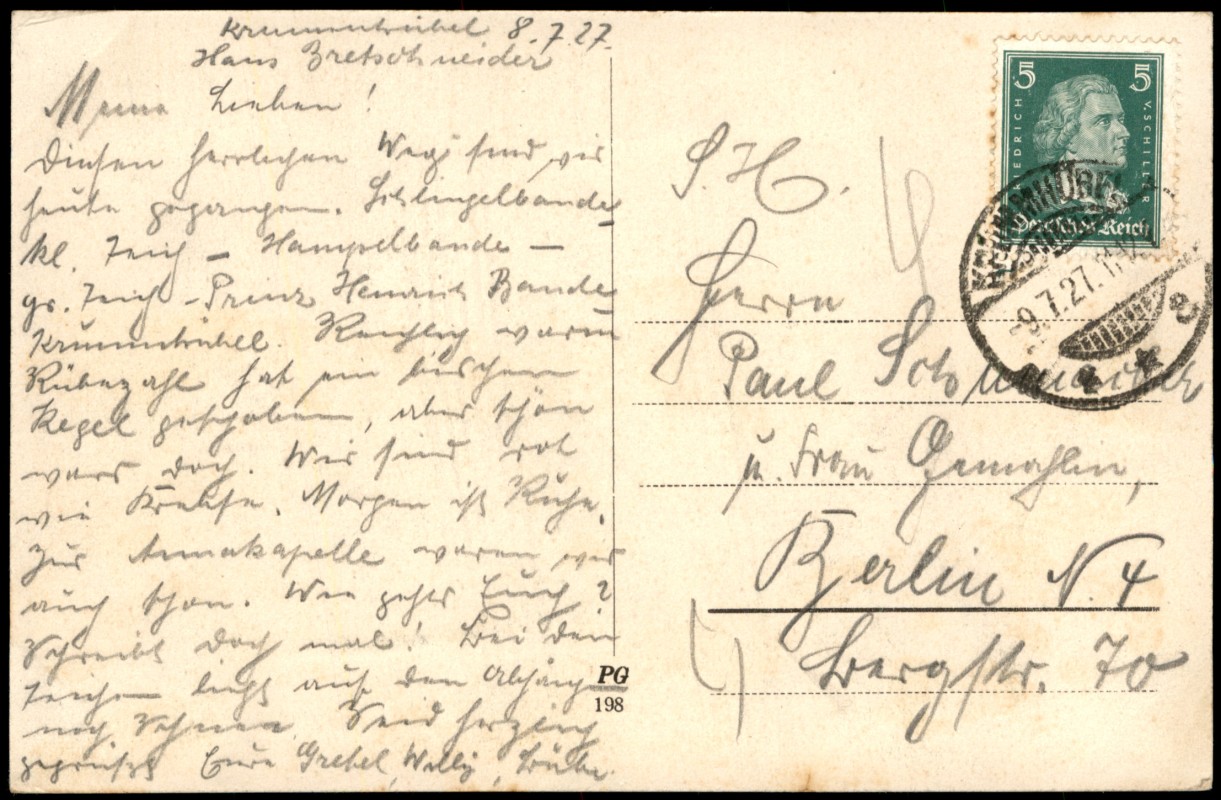 Krummhübel 8.7.27.
Haus Bretschneider
Meine Lieben!
Diesen herrlichen Weg sind wir
heute gegangen. Schlingelbaude
kl. Teich – Hampelbaude –
gr. Teich – Prinz Heinrich Baude
Krummhübel.
Rübezahl hat ein bischen
Kegel geschoben, aber schön
wars doch. Wir sind rot
wie Krebse. Morgen ist Ruhe.
Zur Annakapelle waren wir
auch schon. Wie gehts Euch?
Schreibt doch mal! Bei den
Teichen liegt auf den Abhäng
noch Schnee. Seid herzlich
gegrüßt Eure Gretel, Willy,
PG
198
5 5
FRIEDRICH V. SCHILLER
Deutsches Reich
KRUMMHÜBEL
-9.7.27.
S. H.
Herrn
Paul Schneider
u. Frau Gemahlin,
Berlin N. 4
Bergstr. 70